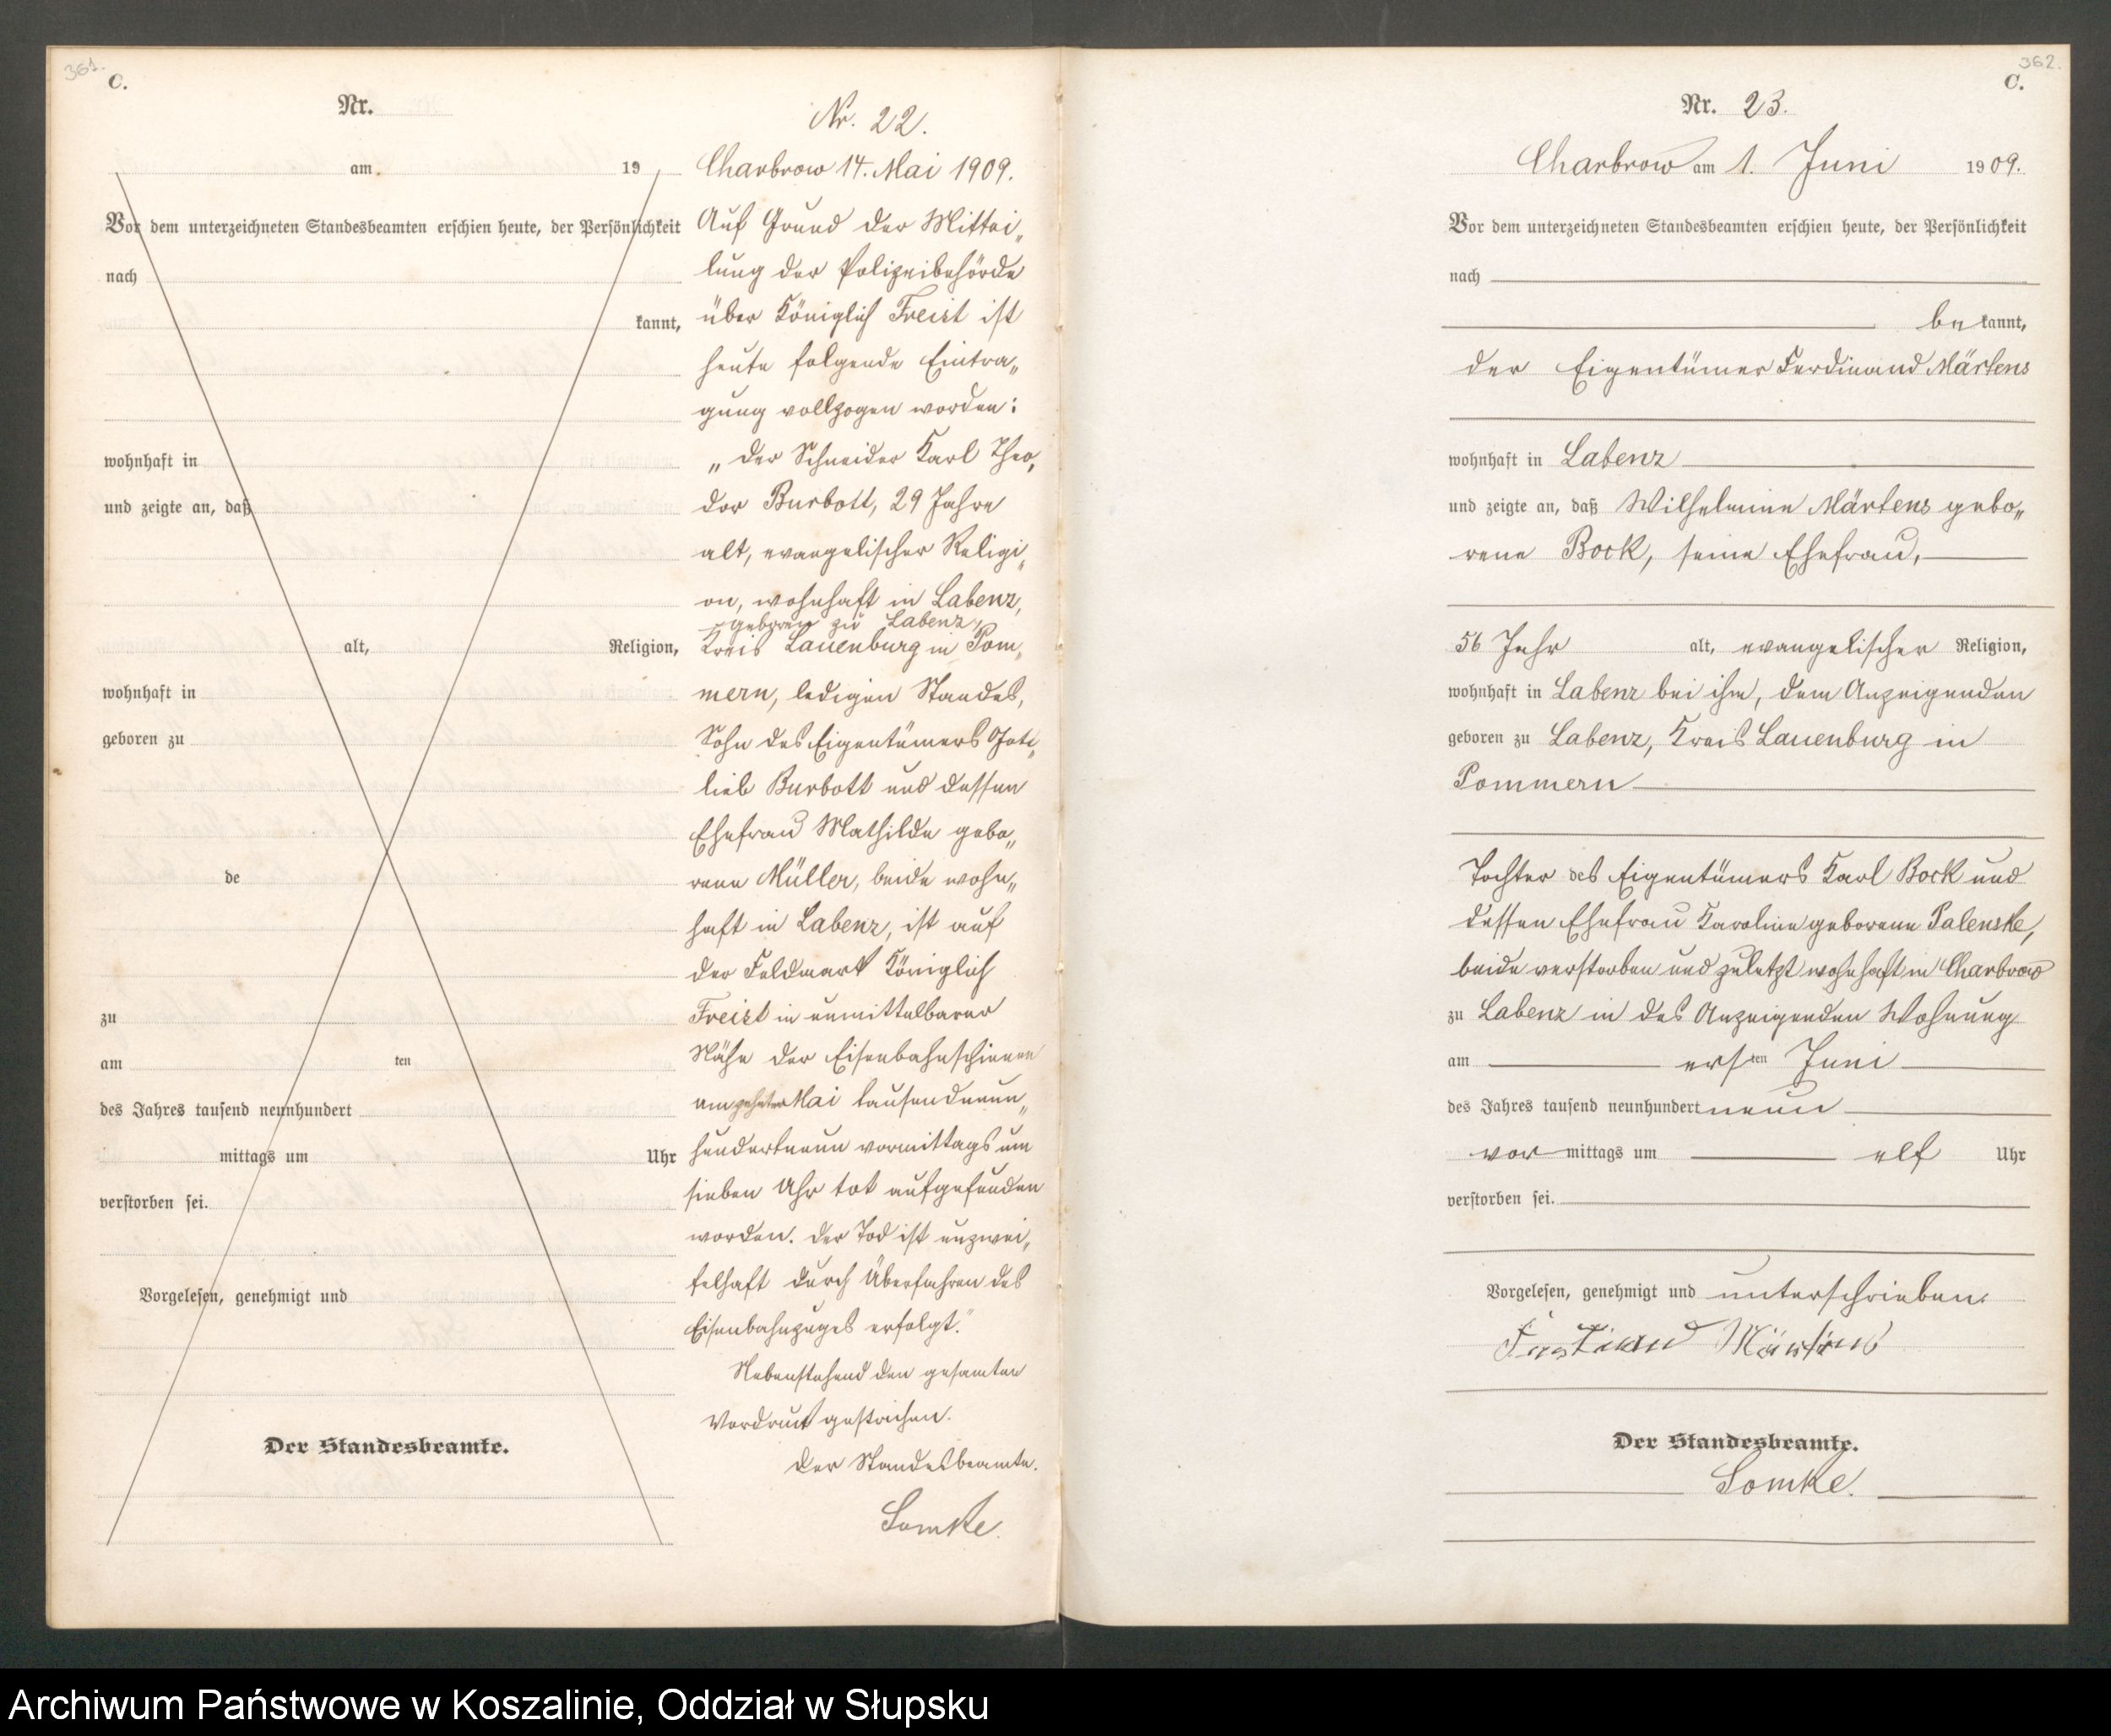 361.
C.
Nr.
am 19
Vor dem unterzeichneten Standesbeamten erschien heute, der Persönlichkeit
nach
kannt,
wohnhaft in
und zeigte an, daß
alt, Religion,
wohnhaft in
geboren zu
de
zu
am ten
des Jahres tausend neunhundert
mittags um Uhr
verstorben sei.
Vorgelesen, genehmigt und
Der Standesbeamte.
Nr. 22.
Charbrow 14. Mai 1909.
Auf Grund der Mittei„
lung der Polizeibehörde
über Königlich Freist ist
heute folgende Eintra„
gung vollzogen worden:
„Der Schneider Karl Theo„
dor Burbott, 29 Jahre
alt, evangelischer Religi„
on, wohnhaft in Labenz,
geboren zu Labenz,
Kreis Lauenburg in Pom„
mern, ledigen Standes,
Sohn des Eigentümers Gott„
lieb Burbott und dessen
Ehefrau Mathilde gebo„
rene Müller, beide wohn„
haft in Labenz, ist auf
der Feldmark Königlich
Freist in unmittelbarer
Nähe der Eisenbahnschienen
am zehnten Mai tausendneun„
hundertneun vormittags um
sieben Uhr tot aufgefunden
worden. Der Tod ist unzwei„
felhaft durch Überfahren des
Eisenbahnzuges erfolgt."
Nebenstehend den gesamten
Vordruck gestrichen.
Der Standesbeamte.
Somke.
362.
C.
Nr. 23.
Charbrow am 1. Juni 1909.
Vor dem unterzeichneten Standesbeamten erschien heute, der Persönlichkeit
nach
bekannt,
der Eigentümer Ferdinand Märtens
wohnhaft in Labenz
und zeigte an, daß Wilhelmine Märtens gebo„
rene Bock, seine Ehefrau,
56 Jahr alt, evangelischer Religion,
wohnhaft in Labenz bei ihm, dem Anzeigenden
geboren zu Labenz, Kreis Lauenburg in
Pommern
Tochter des Eigentümers Karl Bock und
dessen Ehefrau Karoline geborene Palenske,
beide verstorben und zuletzt wohnhaft in Charbrow
zu Labenz in des Anzeigenden Wohnung
am ersten Juni
des Jahres tausend neunhundert neun
vormittags um elf Uhr
verstorben sei.
Vorgelesen, genehmigt und unterschrieben.
Ferdinand Märtens
Der Standesbeamte.
Somke.
Archiwum Państwowe w Koszalinie, Oddział w Słupsku